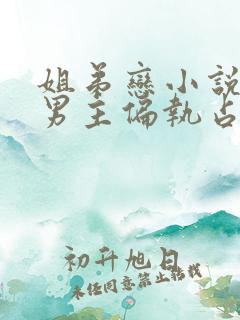 姐弟戀小說
男主偏執占
初升旭日
未經同意禁止轉載